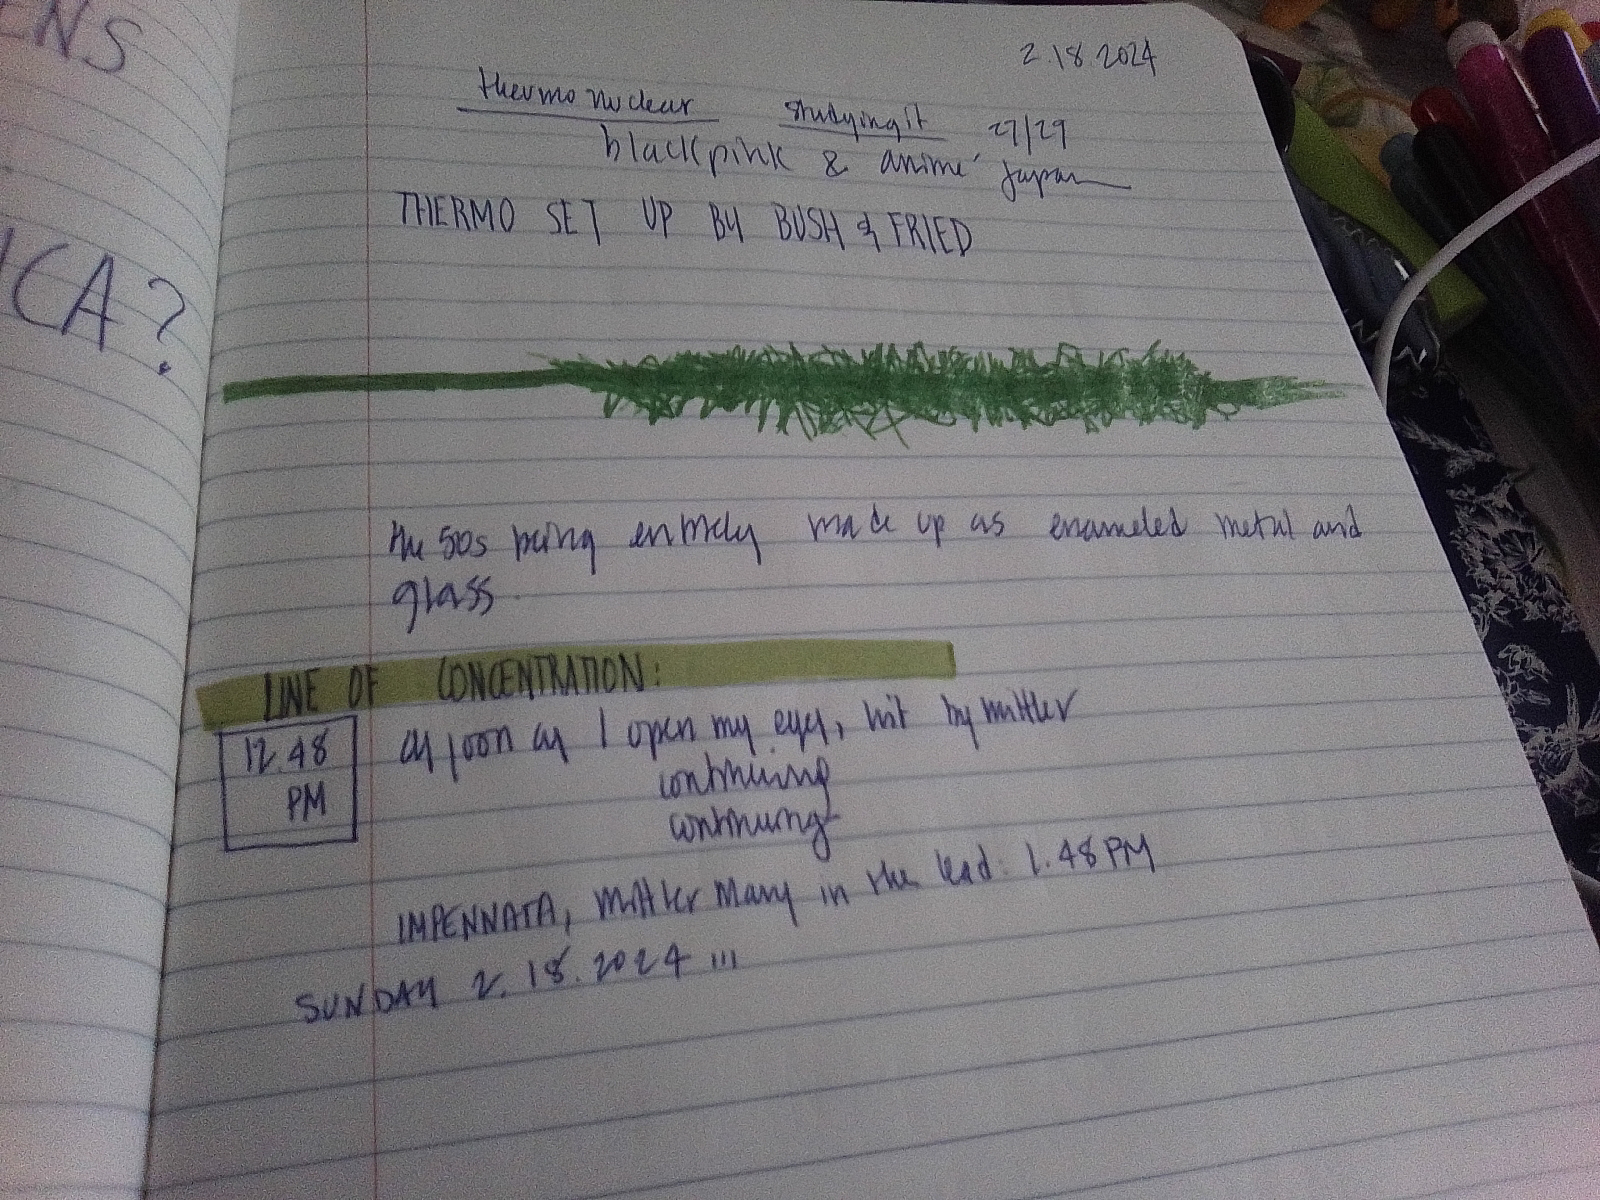 ENS
ICA?
2.18.2024
thermonuclear studying it 27/29
blackpink & animé Japan
THERMO SET UP BY BUSH & FRIED
the 50s being entirely made up as enameled metal and
glass.
LINE OF CONCENTRATION:
12.48
PM
as soon as I open my eyes, hit by mittler
continuing
continuing
IMPENNATA, mittler Mary in the lead. 1.48 PM
SUNDAY 2.18.2024 !!!